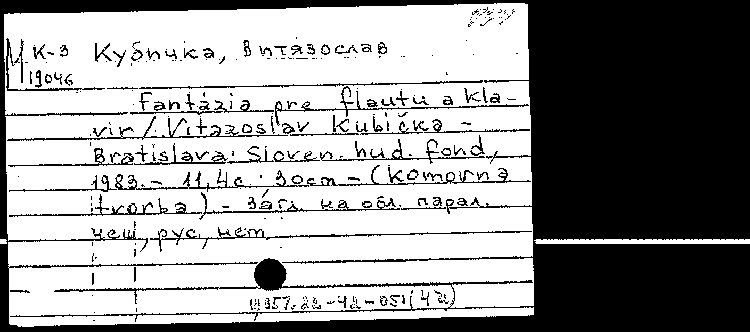 М К-3 Кубичка, Витязослав
19046
Fantázia pre flautu a kla-
vir / Vítazoslav Kubička -
Bratislava: Sloven. hud. fond,
1983. - 11,4 с. : 30cm - (Komorna
tvorba) - Загл. на обл. парал.
чеш, рус, нем.